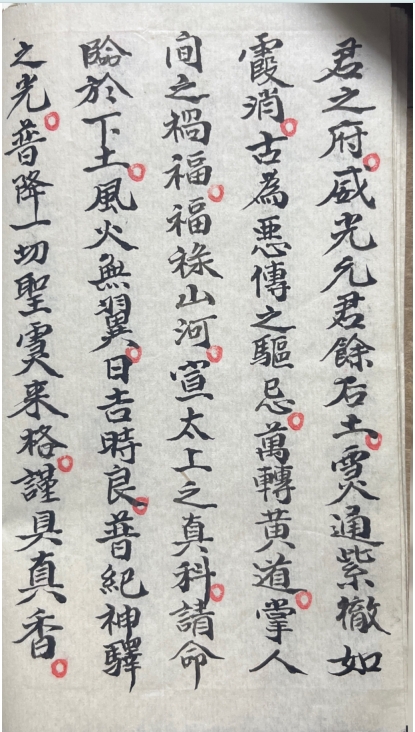 君之府。威光元君餘石土。霛通紫徹如
霞消。古為惡傳之驅忌。萬轉黃道。掌人
間之禍福。福祿山河。宣太上之真科。請命
臨於下土。風火無翼。日吉時良。普紀神驛
之光。普降一切聖霛來格。謹具真香。